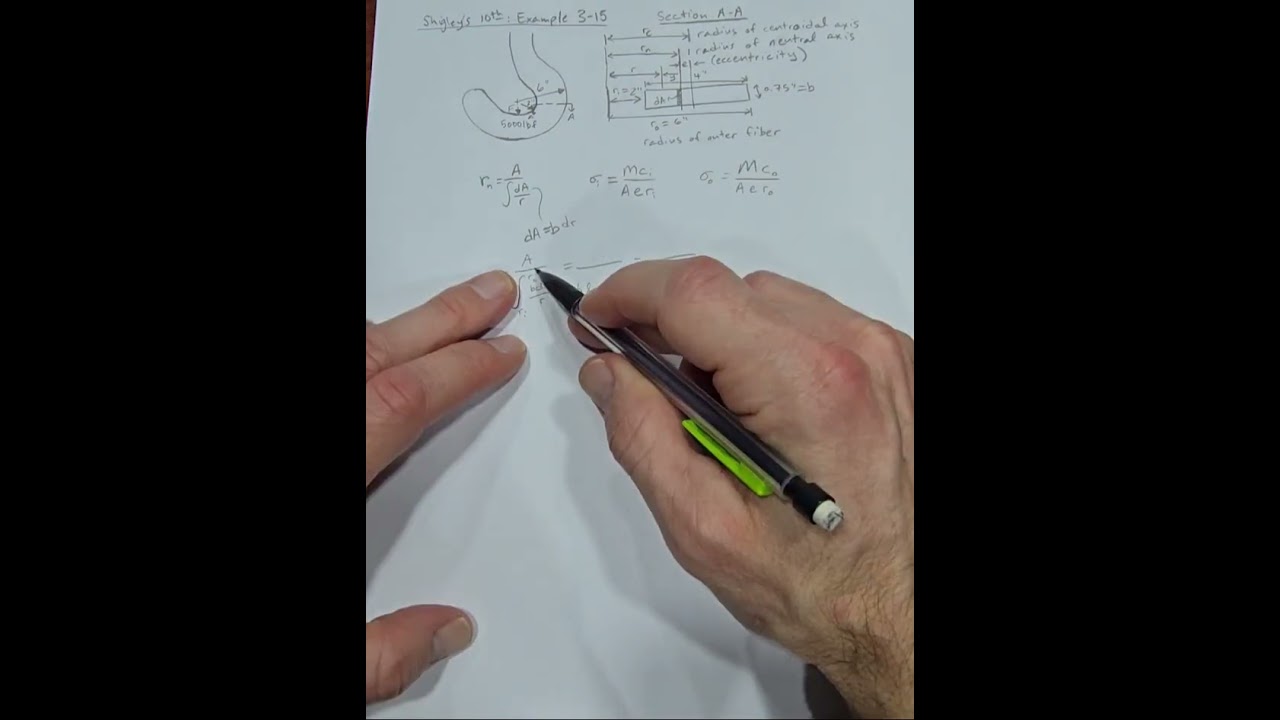 Shigley's 10th: Example 3-15
Section A-A
rc radius of centroidal axis
rn radius of neutral axis
(eccentricity)
r
4"
6"
ri = 2"
dA
0.75" = b
A
5000 lbf
ro = 6"
radius of outer fiber
rn = A / ∫ dA/r
σi = Mci / Aeri
σo = Mco / Aero
dA = b dr
A
=
ri
r